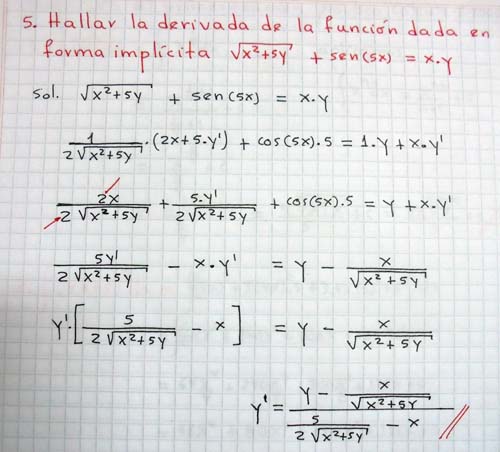 5. Hallar la derivada de la función dada en
forma implícita √(x²+5y) + sen(5x) = x·y
sol. √(x²+5y) + sen(5x) = x·y
1/(2√(x²+5y)) · (2x+5·y') + cos(5x)·5 = 1·y + x·y'
2x/(2√(x²+5y)) + 5·y'/(2√(x²+5y)) + cos(5x)·5 = y + x·y'
5y'/(2√(x²+5y)) − x·y' = y − x/√(x²+5y)
y'·[5/(2√(x²+5y)) − x] = y − x/√(x²+5y)
y' = (y − x/√(x²+5y))/(5/(2√(x²+5y)) − x) //